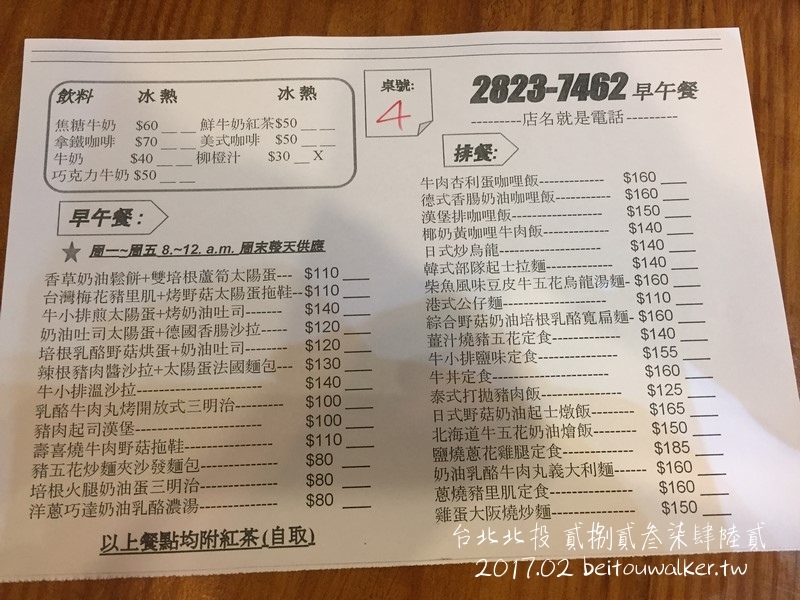 飲料 冰 熱 冰 熱
焦糖牛奶 $60 __ __ 鮮牛奶紅茶$50 __ __
拿鐵咖啡 $70 __ __ 美式咖啡 $50 __ __
牛奶 $40 __ __ 柳橙汁 $30 __ X
巧克力牛奶 $50 __ __
桌號:
4
2823-7462 早午餐
---------店名就是電話---------
早午餐:
★ 周一~周五 8.~12. a.m. 周末整天供應
香草奶油鬆餅+雙培根蘆筍太陽蛋--- $110 ___
台灣梅花豬里肌+烤野菇太陽蛋拖鞋-- $110 ___
牛小排煎太陽蛋+烤奶油吐司------- $140 ___
奶油吐司太陽蛋+德國香腸沙拉----- $120 ___
培根乳酪野菇烘蛋+奶油吐司------- $120 ___
辣根豬肉醬沙拉+太陽蛋法國麵包--- $130 ___
牛小排溫沙拉--------------------- $140 ___
乳酪牛肉丸烤開放式三明治--------- $100 ___
豬肉起司漢堡--------------------- $100 ___
壽喜燒牛肉野菇拖鞋--------------- $110 ___
豬五花炒麵夾沙發麵包------------- $80 ___
培根火腿奶油蛋三明治------------- $80 ___
洋蔥巧達奶油乳酪濃湯------------- $80 ___
以上餐點均附紅茶(自取)
排餐:
牛肉杏利蛋咖哩飯------------- $160 ___
德式香腸奶油咖哩飯----------- $160 ___
漢堡排咖哩飯----------------- $150 ___
椰奶黃咖哩牛肉飯------------- $140 ___
日式炒烏龍------------------- $140 ___
韓式部隊起士拉麵------------- $140 ___
柴魚風味豆皮牛五花烏龍湯麵- $160 ___
港式公仔麵------------------- $110 ___
綜合野菇奶油培根乳酪寬扁麵- $160 ___
薑汁燒豬五花定食------------- $140 ___
牛小排鹽味定食--------------- $155 ___
牛丼定食--------------------- $160 ___
泰式打拋豬肉飯--------------- $125 ___
日式野菇奶油起士燉飯--------- $165 ___
北海道牛五花奶油燴飯--------- $150 ___
鹽燒蔥花雞腿定食------------- $185 ___
奶油乳酪牛肉丸義大利麵------ $160 ___
蔥燒豬里肌定食--------------- $160 ___
雞蛋大阪燒炒麵--------------- $150 ___
台北北投 貳捌貳叁柒肆陸貳
2017.02 beitouwalker.tw